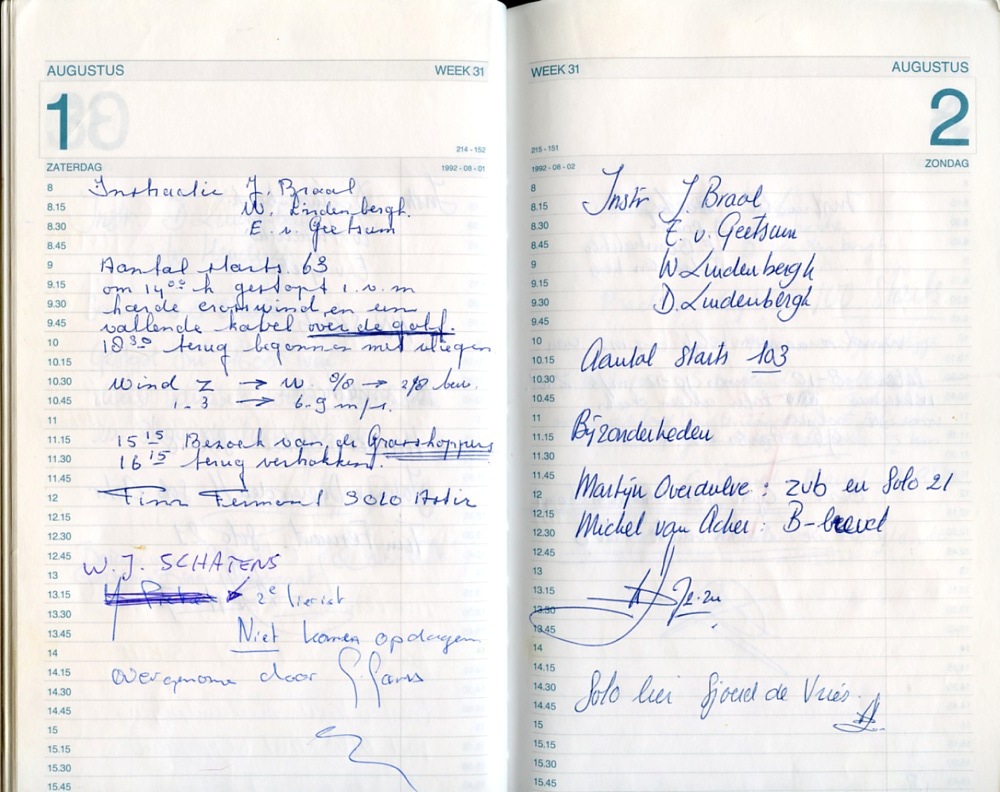 AUGUSTUS WEEK 31
1
214 - 152
ZATERDAG 1992 - 08 - 01
8
8.15
8.30
8.45
9
9.15
9.30
9.45
10
10.15
10.30
10.45
11
11.15
11.30
11.45
12
12.15
12.30
12.45
13
13.15
13.30
13.45
14
14.15
14.30
14.45
15
15.15
15.30
15.45
Instructie J. Braal
W. Lindenbergh.
E. v. Geetsum
Aantal starts. 63
om 14⁰⁰ h gestopt i.v.m
harde crosswind en een
vallende kabel over de golf.
18³⁰ terug begonnen met vliegen
Wind Z → W. 0/8 → 2/8 bew.
1 - 3 → 6-9 m/s.
15¹⁵ Bezoek van de Grasshoppers
16¹⁵ terug vertrokken.
SOLO
W. J. SCHATENS
2e lierist
Niet komen opdagen
overgenome door
WEEK 31 AUGUSTUS
2
215 - 151
1992 - 08 - 02 ZONDAG
8
8.15
8.30
8.45
9
9.15
9.30
9.45
10
10.15
10.30
10.45
11
11.15
11.30
11.45
12
12.15
12.30
12.45
13
13.15
13.30
13.45
14
14.15
14.30
14.45
15
15.15
15.30
15.45
Instr J. Braal
E. v. Geetsum
W Lindenbergh
D. Lindenbergh
Aantal starts 103
Bijzonderheden
Martijn Overdulve : zvb en Solo 21
Michel van Acher : B-brevet
Solo lier Sjoerd de Vries.